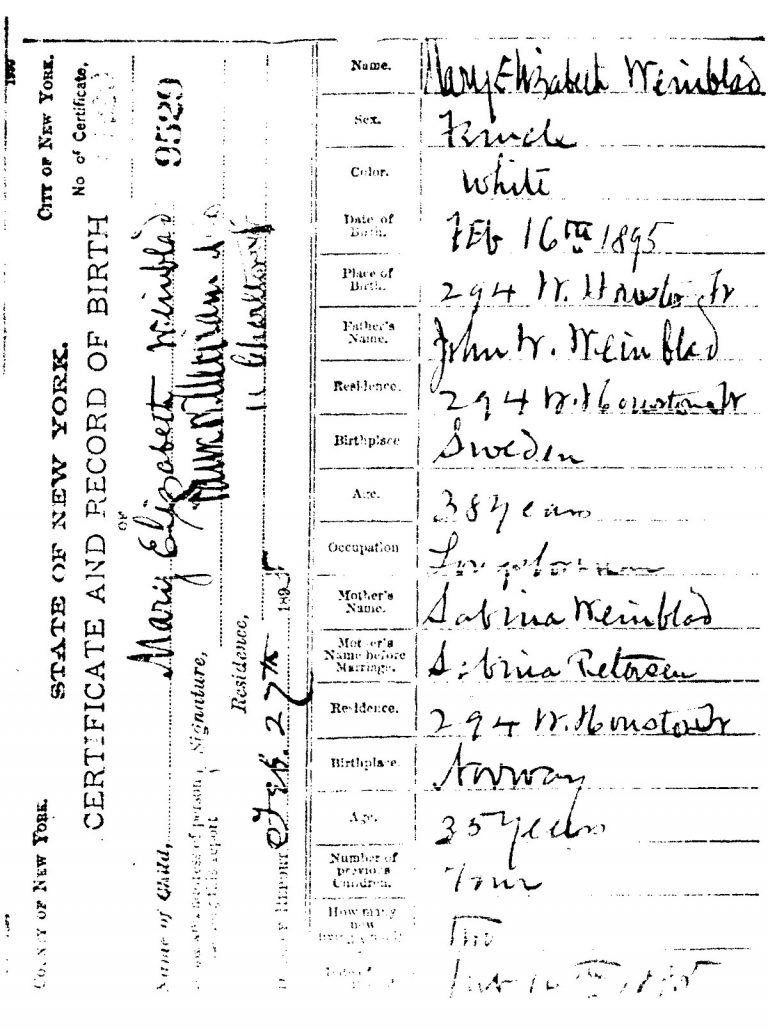 COUNTY OF NEW YORK. CITY OF NEW YORK.
STATE OF NEW YORK. No of Certificate,
CERTIFICATE AND RECORD OF BIRTH 9529
OF
Name of Child, Mary Elizabeth Weinblad
person Signature,
this report
Residence, 11 Charlton St
OF REPORT Feb. 27th 1895
Name. Mary Elizabeth Weinblad
Sex. Female
Color. White
Date of Birth. FEb 16TH 1895
Place of Birth. 294 W. Houston St
Father's Name. John W. Weinblad
Residence. 294 W. Houston St
Birthplace Sweden
Age. 38 years
Occupation Longshoreman
Mother's Name. Sabina Weinblad
Mother's Name before Marriage. Sabina Petersen
Residence. 294 W. Houston St
Birthplace. Norway
Age. 35 years
Number of previous Children. Four
How many now
1895